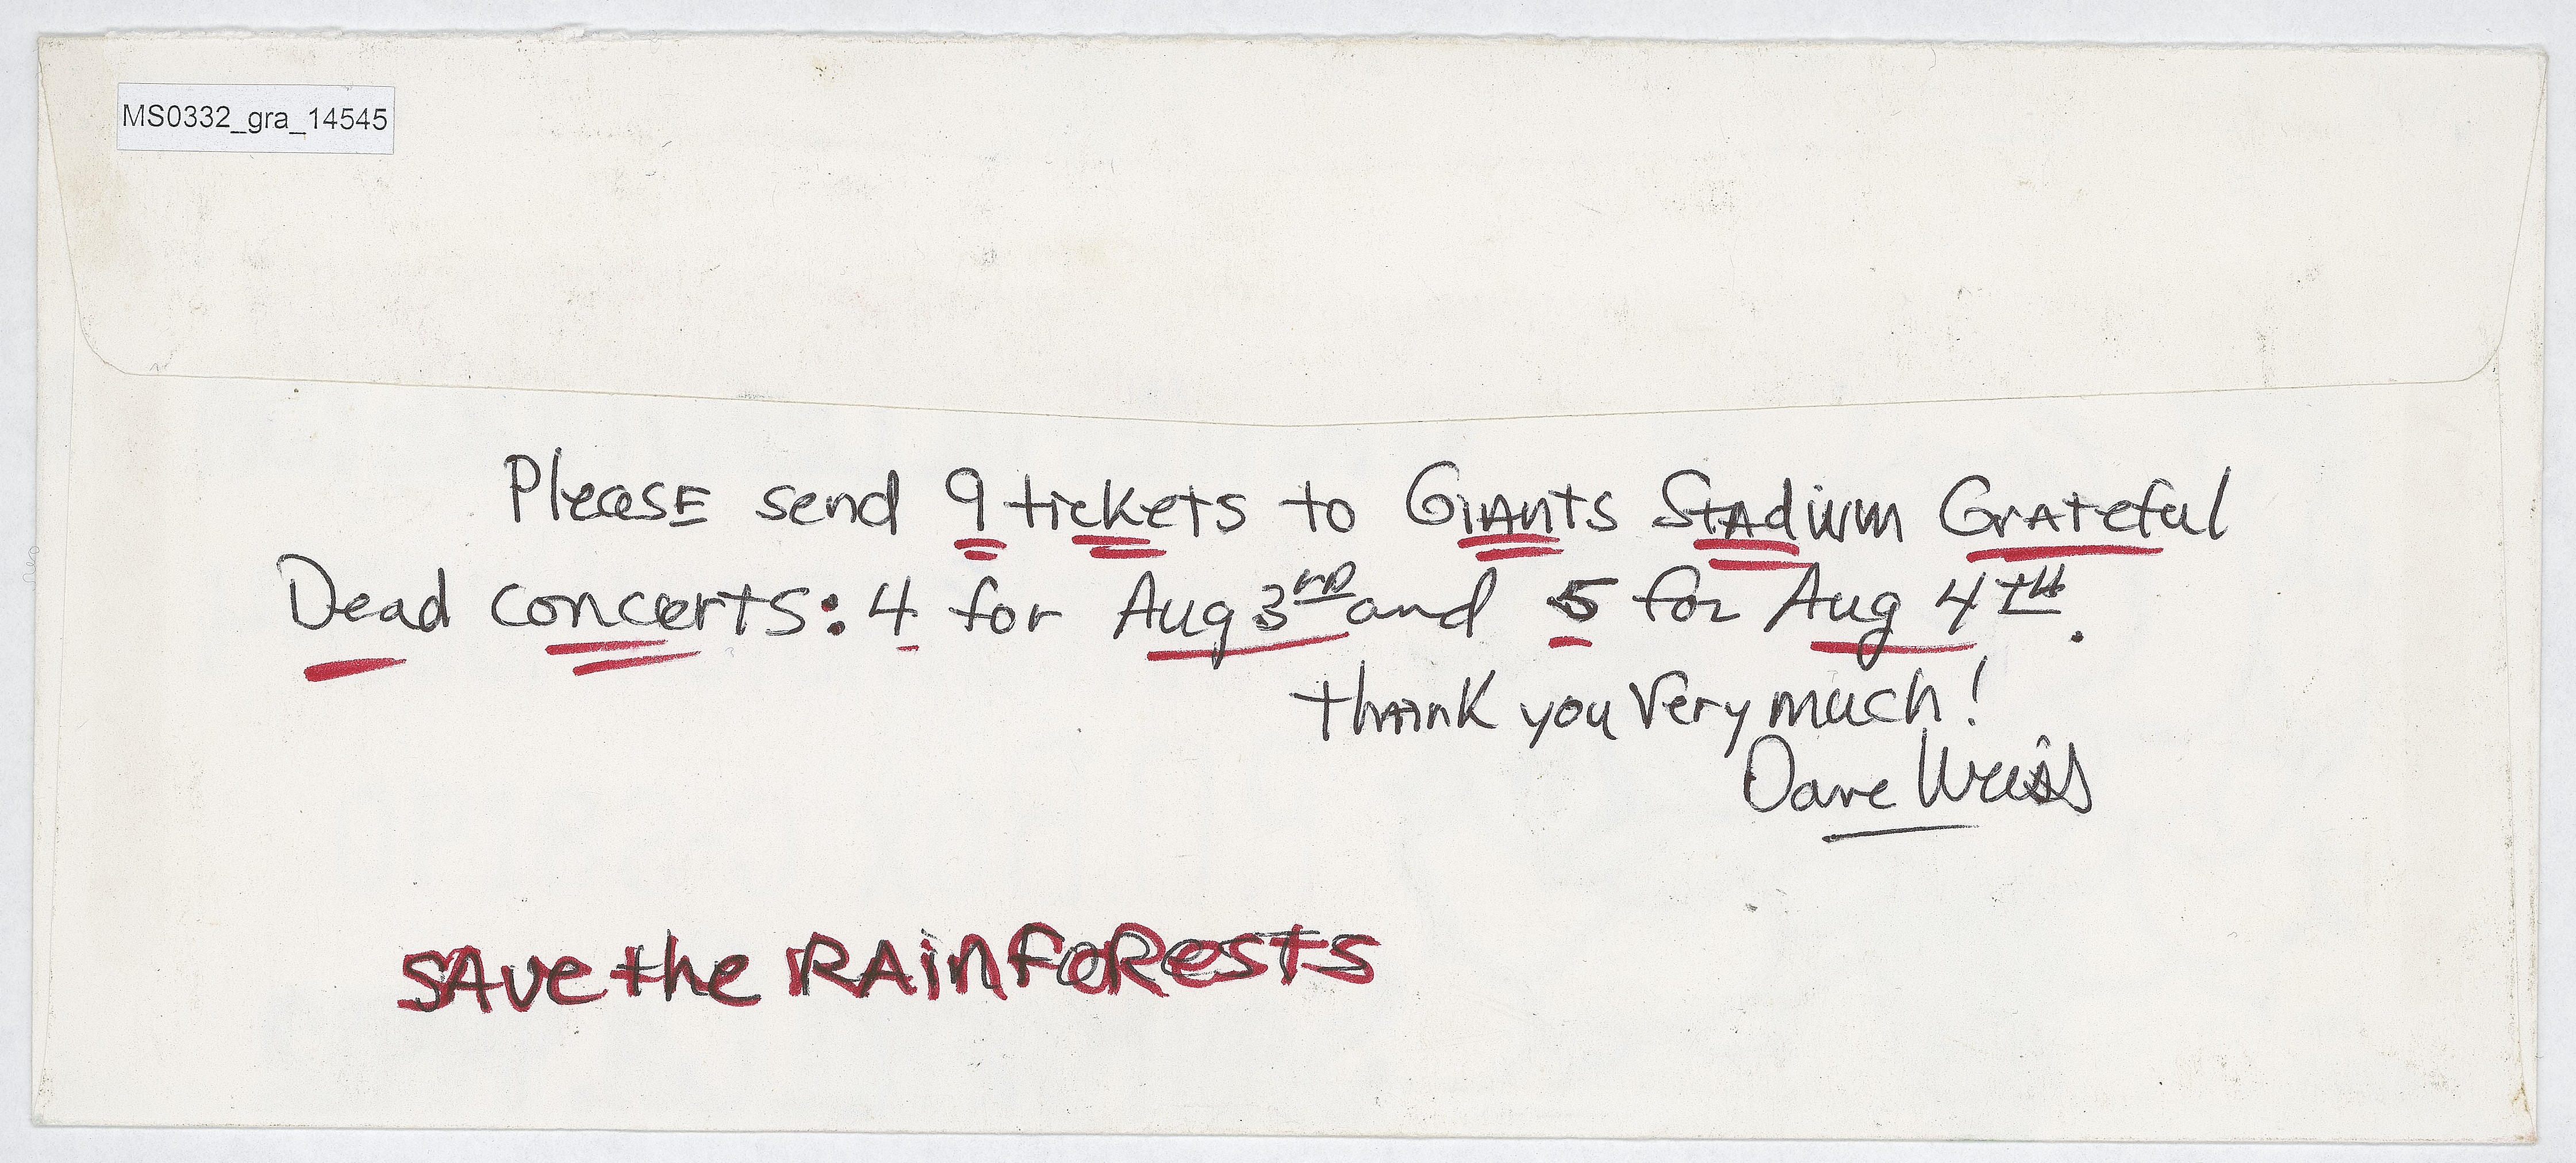 MS0332_gra_14545
PleasE send 9 tickets to GiAnts StAdium GrAteful
Dead concerts: 4 for Aug 3RD and 5 for Aug 4TH.
thAnk you very much!
Dave Weiss
SAve the RAinfoRests